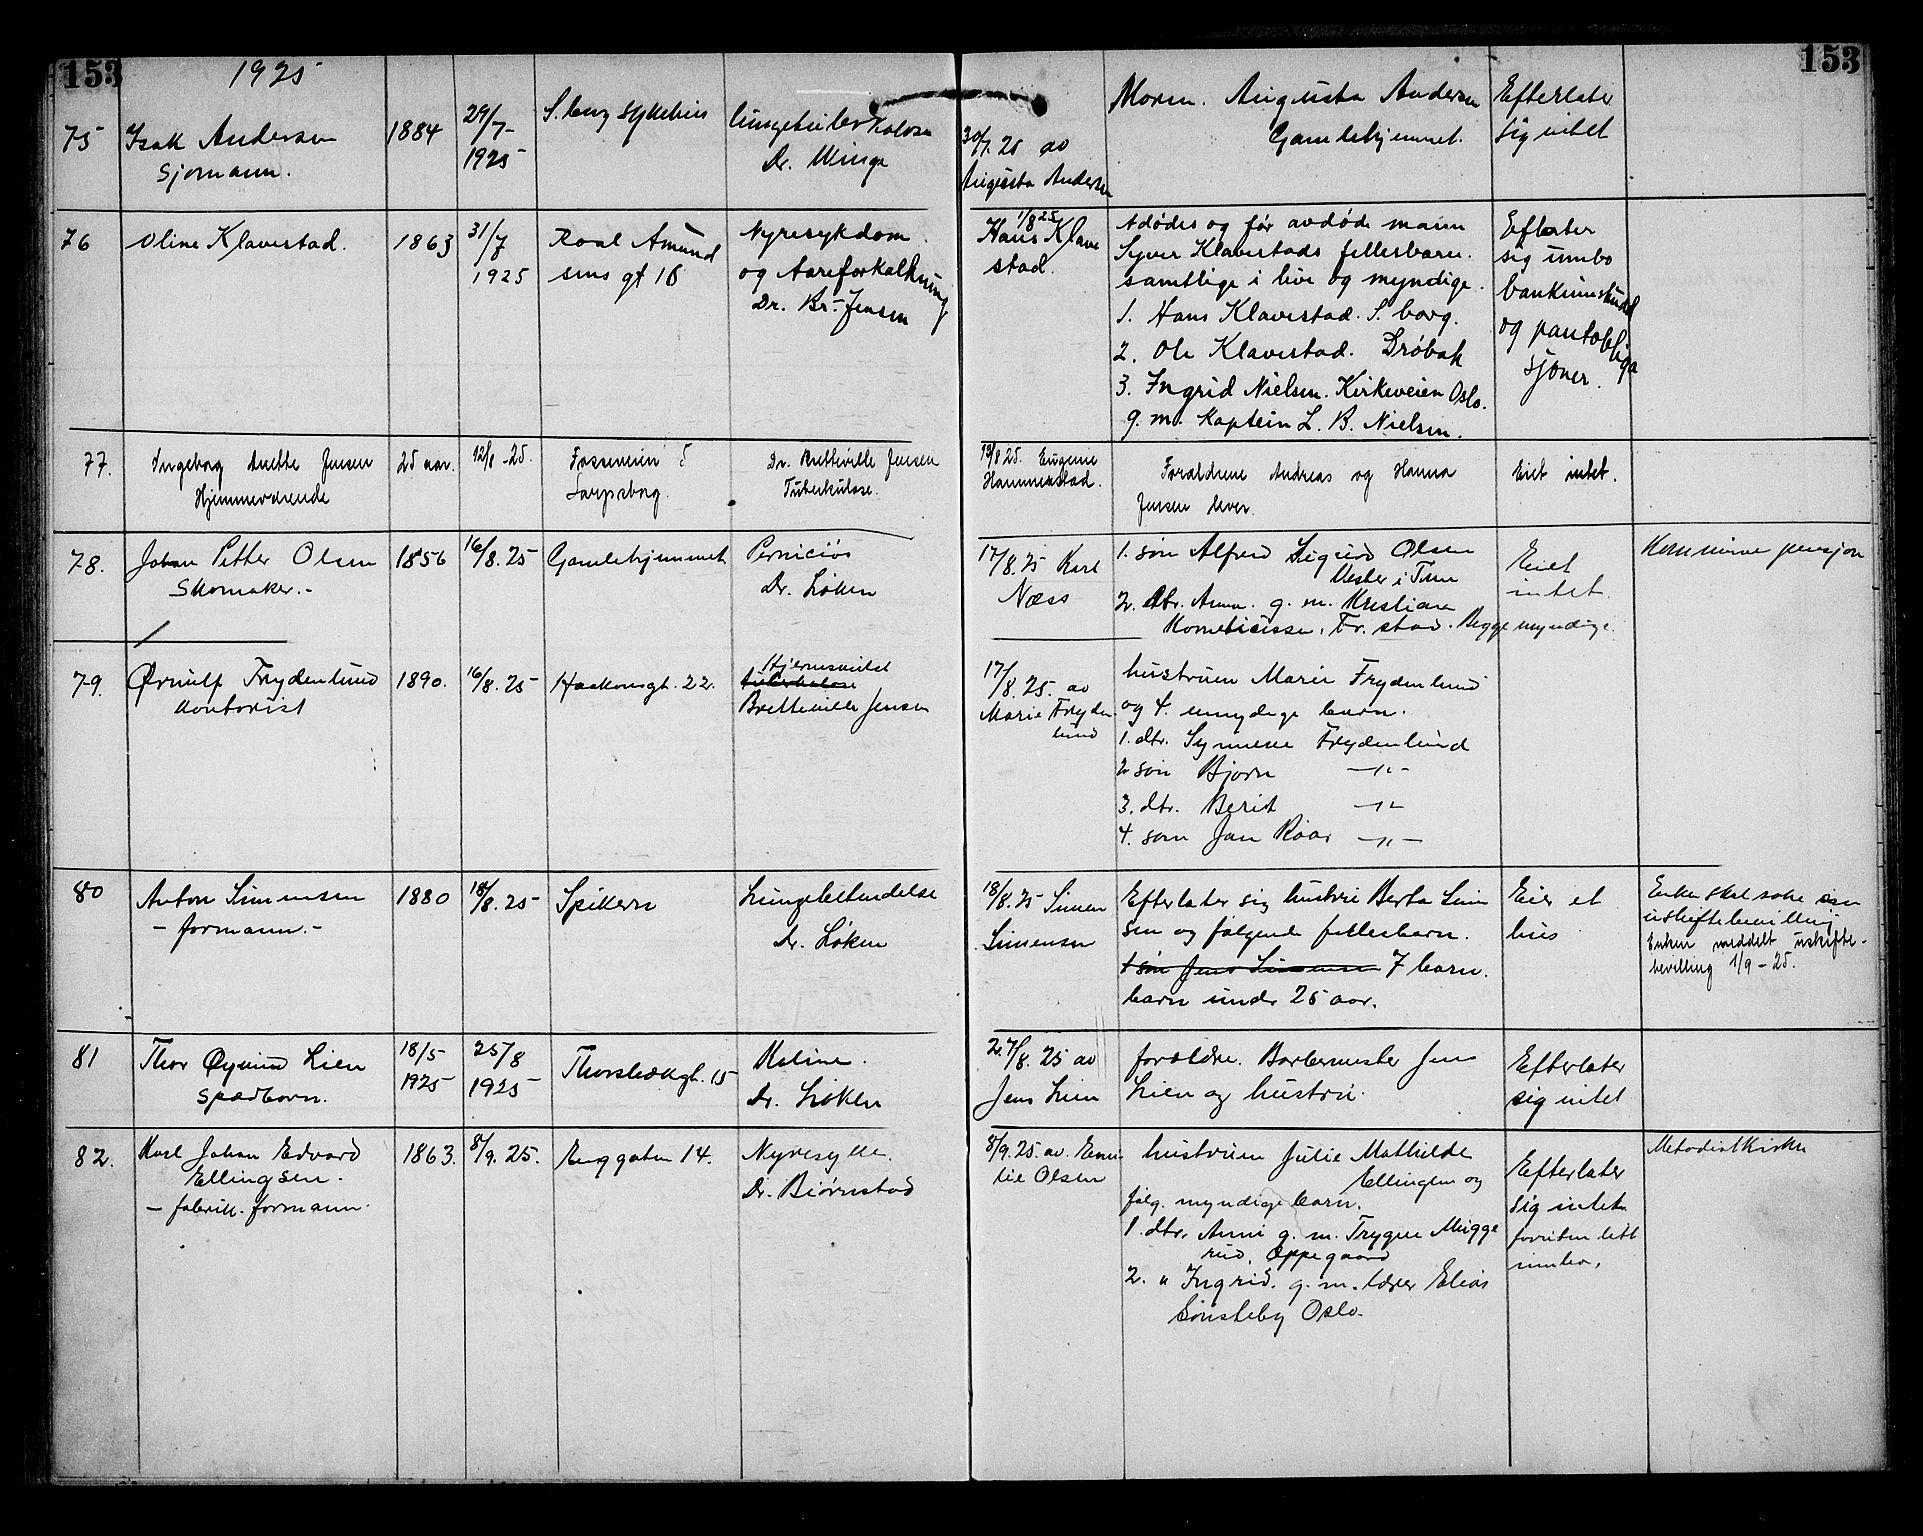 153
1925
153
75
Isak Andersen
sjømann.
1884
29/7-
1925
S.borg sykehus
lungetuberkulose
Dr. Winge
30/7. 25 av
Augusta Andersen
Moren. Augusta Andersen
Gamlehjemmet.
Efterlater
sig intet
76
Oline Klavestad.
1863
31/7
1925
Roal Amund
sens gt 18
Nyresykdom
og Aareforkalkning
Dr. Br. Jensen
1/8 25
Hans Klave
stad.
Adødes og før avdøde mann
Syver Klavestads fellesbarn.
samtlige i live og myndige.
1. Hans Klavestad. S. borg.
2. Ole Klavestad. Drøbak
3. Ingrid Nielsen. Kirkeveien Oslo.
g. m. Kaptein L. B. Nielsen.
Eflater
sig innbo
bankinnskudd
og pantobliga
sjoner.
77.
Ingeborg Anette Jensen
Hjemmeværende
25 aar.
12/8 -25.
Fosseveien 5
Sarpsborg.
Dr. Bretteville Jensen
Tuberkulose.
13/8 25. Eugenie
Hammerstad.
Forældrene Andreas og Hanna
Jensen lever.
Eiet intet.
78.
Johan Petter Olsen
Skomaker.-
1856
16/8.25
Gamlehjemmet
Perniciøs
Dr. Løken
17/8.25 Karl
Næss
1. søn Alfred Sigurd Olsen
i Tune
2. dtr. Anna. g. m. Kristian
Fr. stad. Begge myndige.
Eiet
intet.
Kommune pensjon
79.
Ørnulf Frydenlund
Kontorist
1890.
16/8.25
Haakonsgt. 22.
tuberkulose
Bretteville Jensen
17/8.25. av
Marie Fryden
lund
hustruen Marie Frydenlund
og 4. umyndige barn.
1. dtr. Synnøve Frydenlund
2 søn Bjørn -"-
3. dtr. Berit -"-
4. søn Jan Roar -"-
80
Anton Simensen
- formann.-
1880
18/8.25
Spikern
Lungebetendelse
Dr. Løken
18/8.25 Simen
Simensen
Efterlater sig hustru Berta Sim
sen og følgende fellesbarn.
1 søn Jens Simensen 7 barn.
barn under 25 aar.
Eier et
hus
Enken skal søke om
uskiftebevilling
Enken meddelt uskifte-
bevilling 1/9 - 25.
81
Thor Øyvind Lien
spædbarn.
18/5
1925
25/8
1925
Thorsbækgt. 15
Dr. Løken
27/8. 25 av
Jens Lien
forældre. Barbermester Jens
Lien og hustru.
Efterlater
sig intet
82.
Karl Johan Edvard
Ellingsen.
- fabrikk. formann.
1863.
8/9. 25.
Enggaten 14.
Nyresyke.
Dr. Bjørnstad
8/9. 25. av. Emi
lie Olsen
hustruen Julie Mathilde
Ellingsen og
følg. myndige barn.
1. dtr. Anni g. m. Trygve Mugge
rud, Oppegaard
2. " Ingrid. g. m. lærer Elias
Sønsteby Oslo.
Efterlater
sig intet
foruten litt
innbo,
Metodistkirken